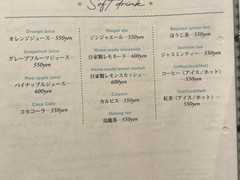 Soft drink
Orange juice
オレンジジュース―550yen
Grapefruit juice
グレープフルーツジュース―
550yen
Pine apple juice
パイナップルジュース
―600yen
Coca Cola
コカコーラ―550yen
Ginger ale
ジンジャエール―550yen
Home-made lemonade
自家製レモネード―600yen
Home-made lemon squash
自家製レモンスカッシュ―
600yen
Calpico
カルピス―550yen
Oolong tea
烏龍茶―550yen
Roasted green tea
ほうじ茶―550yen
Jasmine tea
ジャスミンティー―
550yen
Coffee(Iced/Hot)
コーヒー（アイス／ホット）
―550yen
Tea(Iced/Hot)
紅茶（アイス／ホット）―
550yen